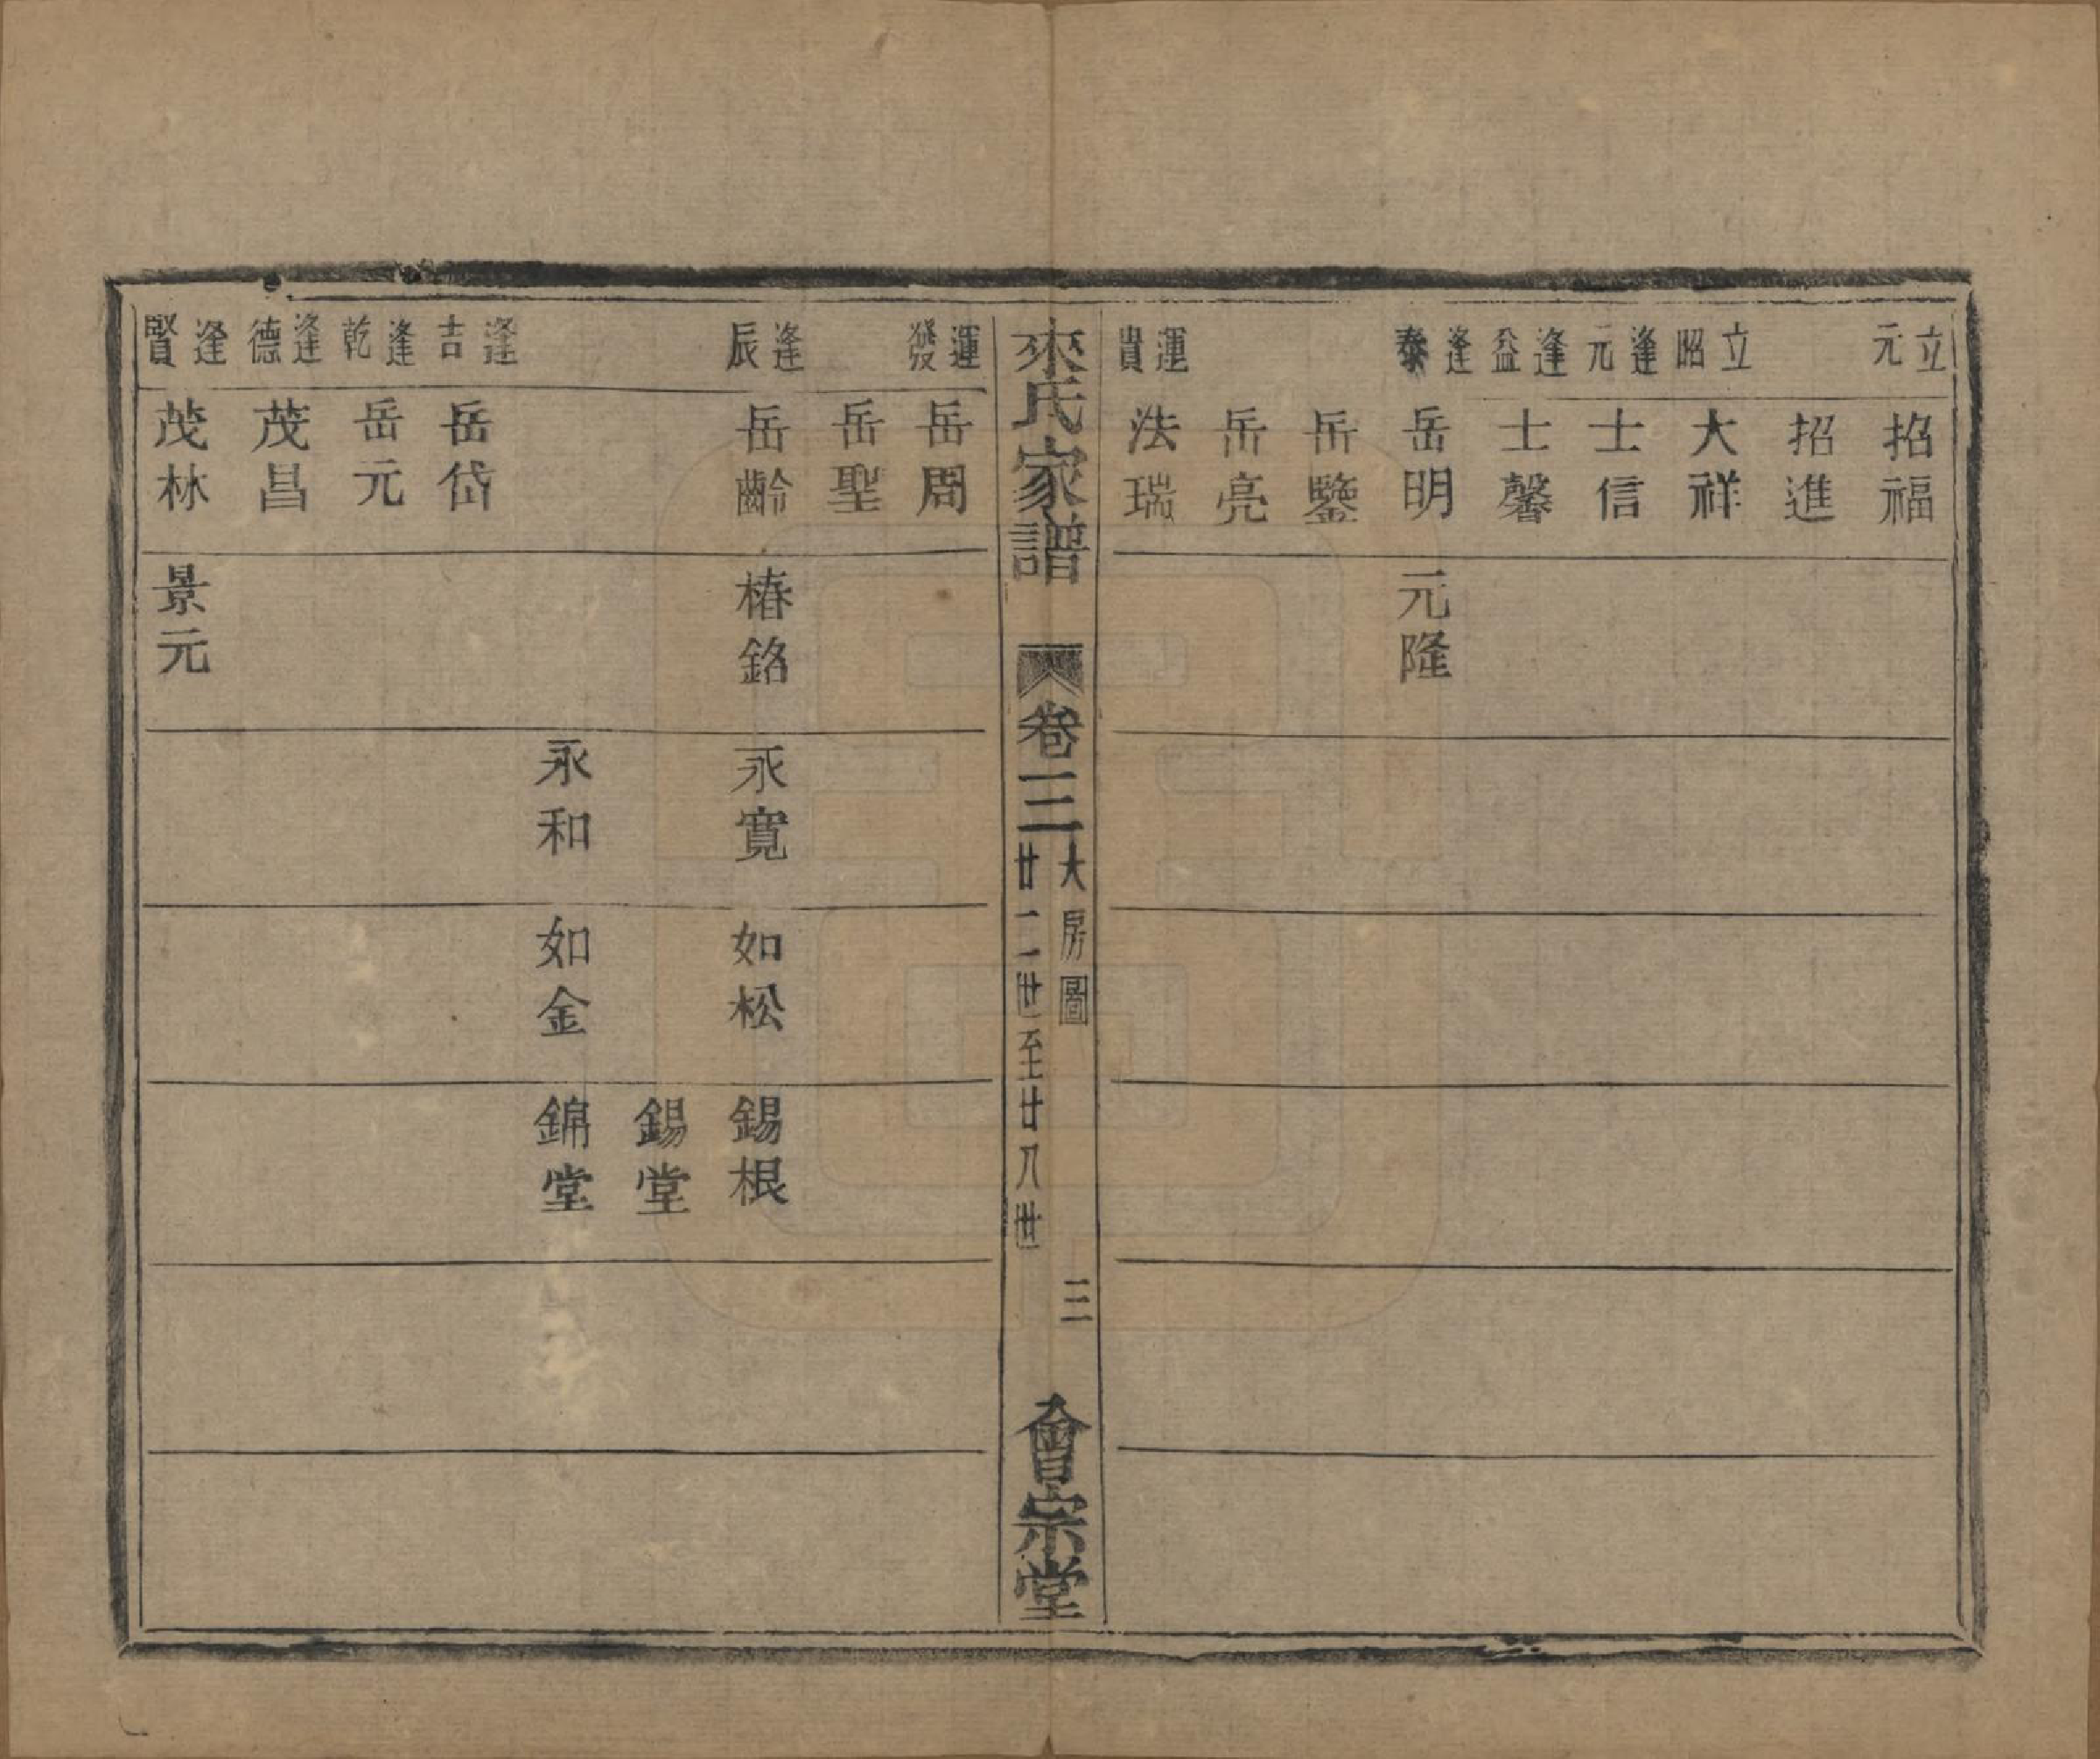 立元
招福
招進
立昭
大祥
逢元
士信
逢益
士馨
逢泰
岳明
元隆
岳鑒
岳亮
運貴
法瑞
來氏家譜
卷三
大房圖
廿二世至廿八世
三
會宗堂
運發
岳周
岳聖
逢辰
岳齡
椿銘
永寬
如松
錫根
錫堂
永和
如金
錦堂
逢吉
岳岱
逢乾
岳元
逢德
茂昌
逢賢
茂林
景元